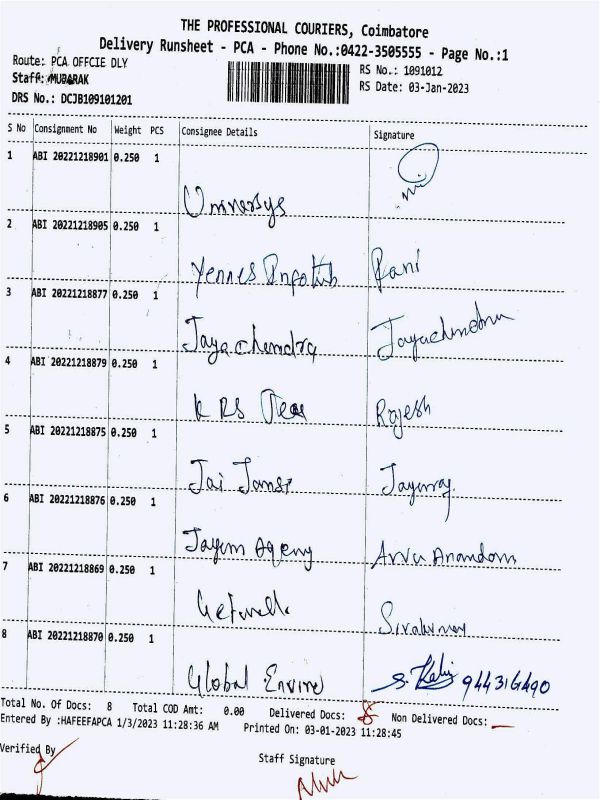 THE PROFESSIONAL COURIERS, Coimbatore
Delivery Runsheet - PCA - Phone No.:0422-3505555 - Page No.:1
Route: PCA OFFCIE DLY
RS No.: 1091012
Staff: MUBARAK
RS Date: 03-Jan-2023
DRS No.: DCJB109101201
S No Consignment No Weight PCS Consignee Details Signature
1 ABI 20221218901 0.250 1
Universys
2 ABI 20221218905 0.250 1
Yennes Infotub Rani
3 ABI 20221218877 0.250 1
Jayachendra Jayachendra
4 ABI 20221218879 0.250 1
K RS Rajesh
5 ABI 20221218875 0.250 1
Jai Jayaraj
6 ABI 20221218876 0.250 1
Jayem Ageny Anandam
7 ABI 20221218869 0.250 1
Getwell
8 ABI 20221218870 0.250 1
Global Enviro S. 944316490
Total No. Of Docs: 8 Total COD Amt: 0.00 Delivered Docs: 8 Non Delivered Docs: —
Entered By :HAFEEFAPCA 1/3/2023 11:28:36 AM Printed On: 03-01-2023 11:28:45
Verified By
Staff Signature